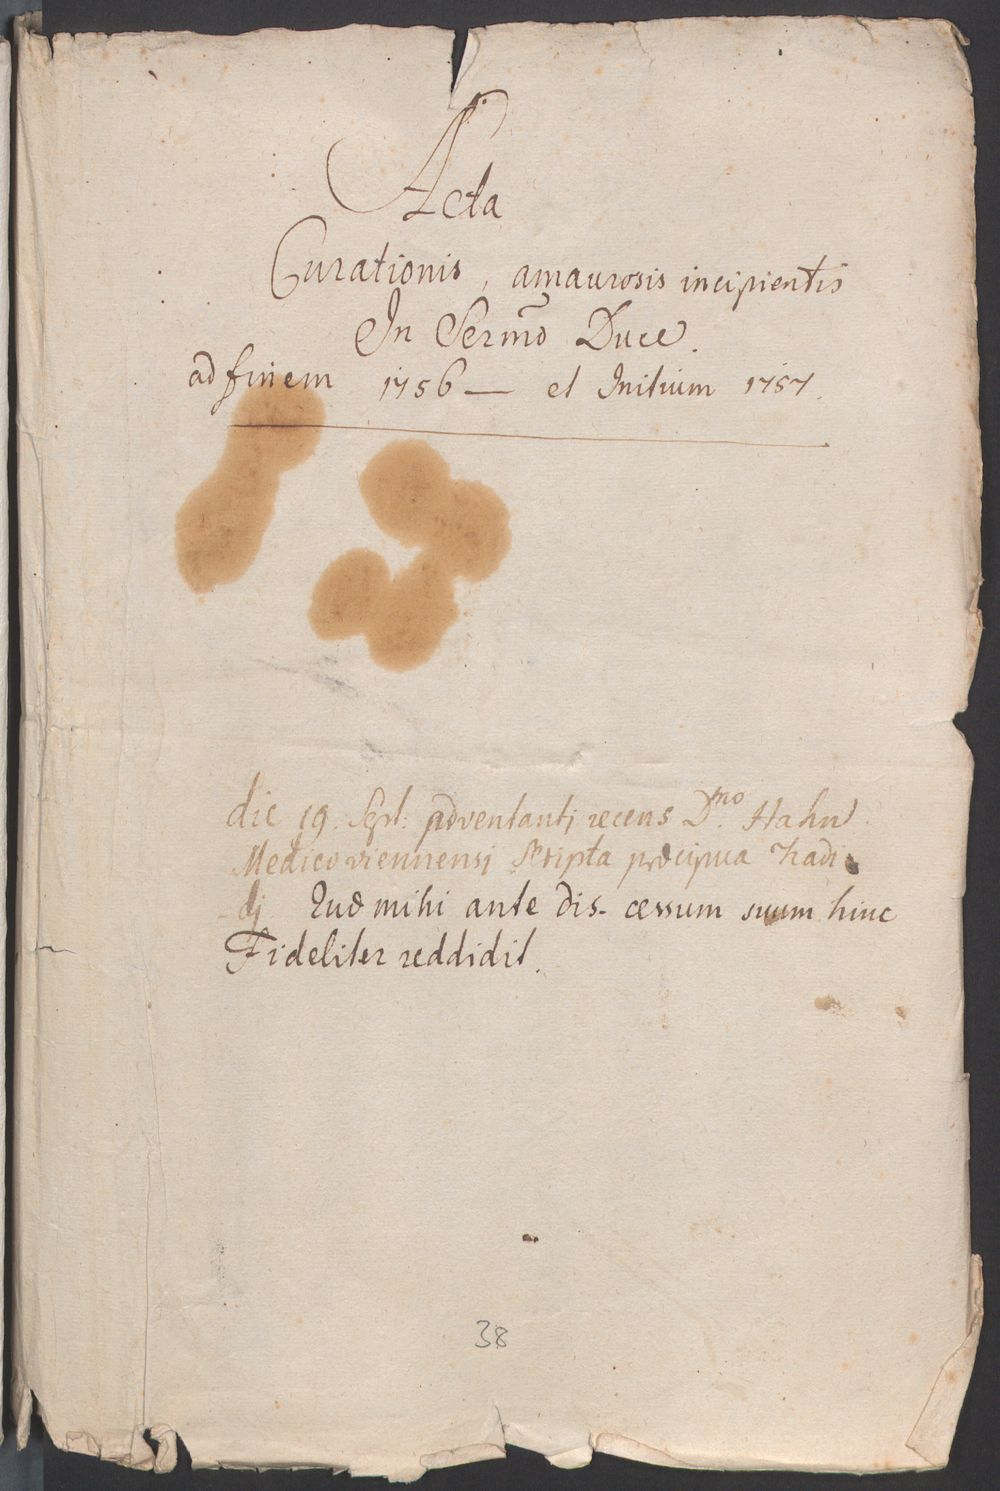 Acta
Curationis, amaurosis incipientis
In Sermo Duce.
ad finem 1756 — et Initium 1757.
die 19. Sept: adventanti recens D.no Hahn
Medico viennensi Scripta præcipua tradi
-di Quæ mihi ante dis- cessum suum hinc
Fideliter reddidit.
38